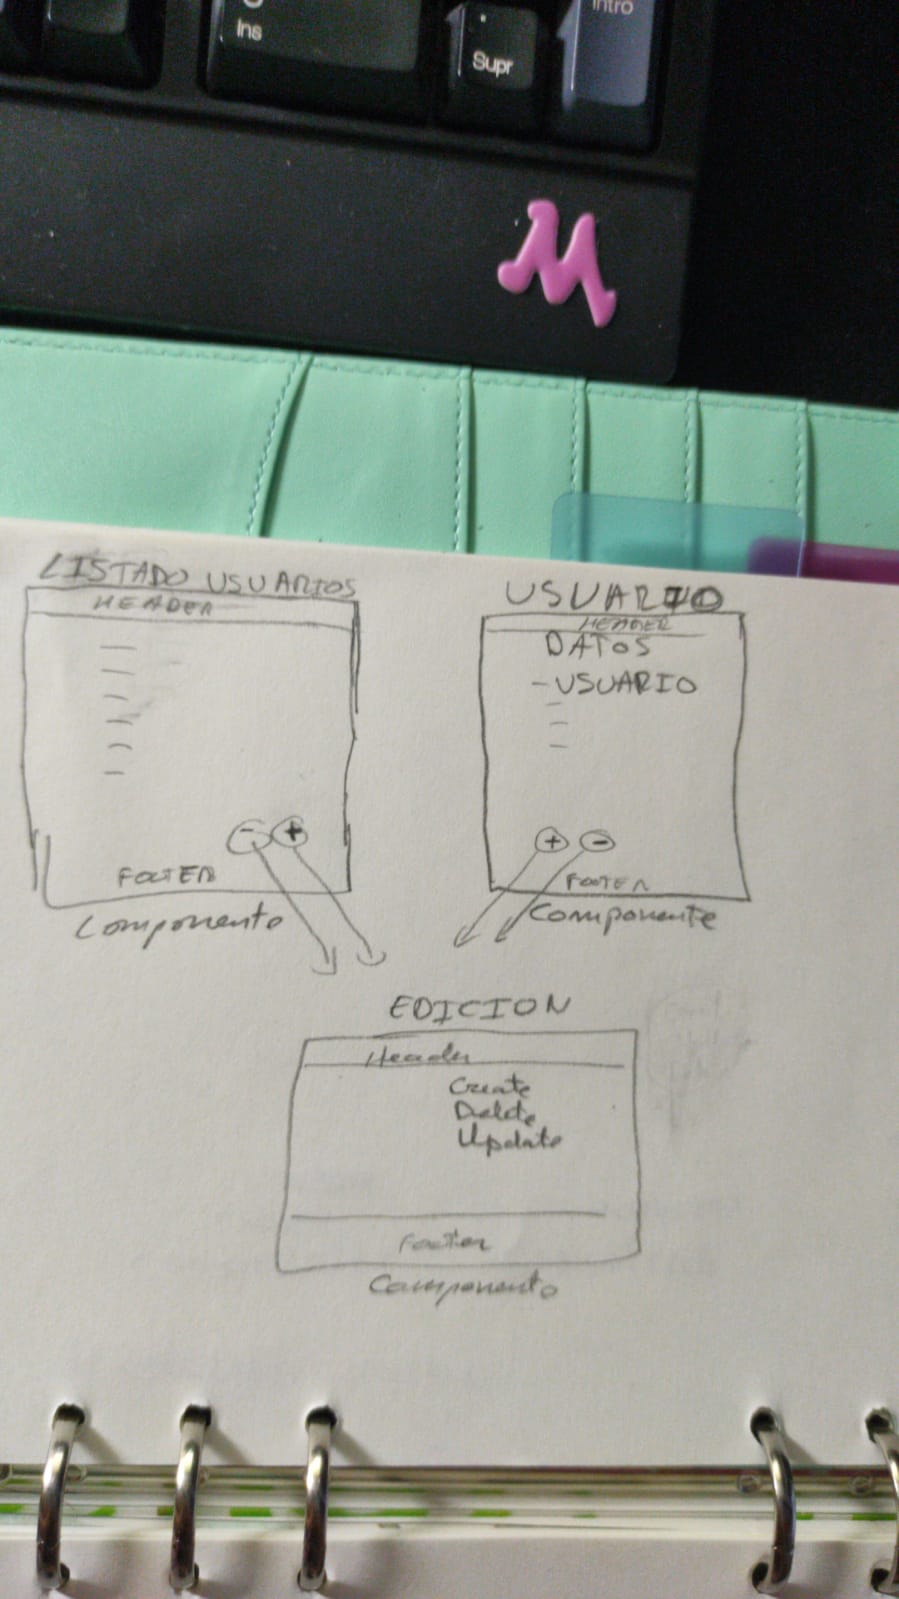 Ins
Supr
Intro
M
LISTADO USUARIOS
HEADER
- +
FOOTER
Componente
USUARIO
HEADER
DATOS
- USUARIO
+ -
FOOTER
Componente
EDICION
Header
Create
Delete
Update
Footer
Componente